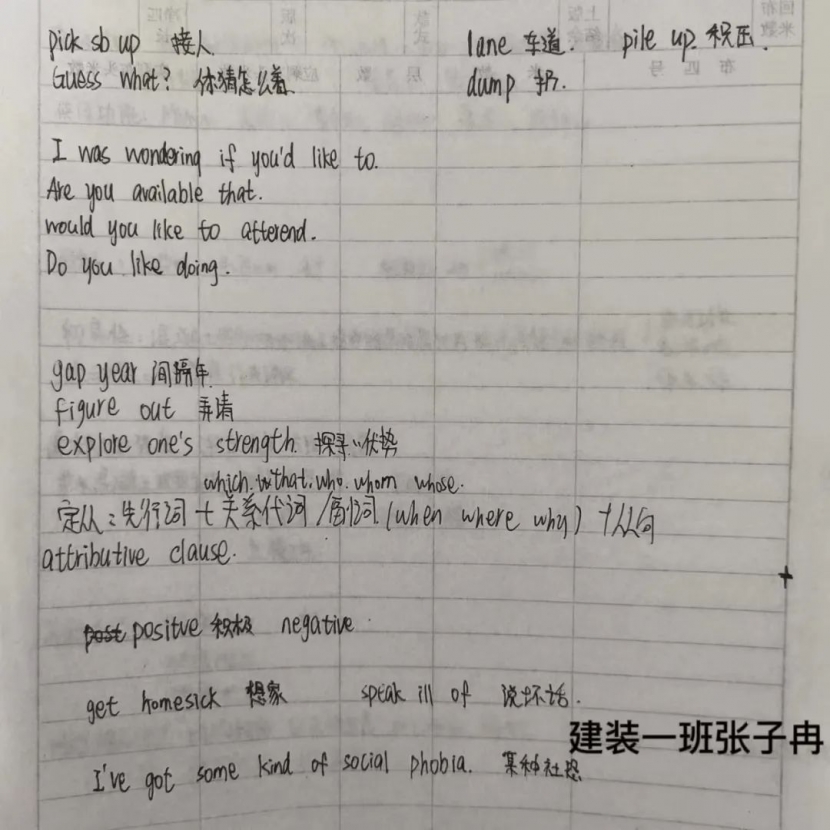 pick sb up 接人 lane 车道. pile up. 积压.
Guess what? 你猜怎么着 dump 扔.
I was wondering if you'd like to.
Are you available that.
would you like to atterend.
Do you like doing.
gap year 间隔年
figure out 弄清
explore one's strength. 探寻…优势
which. that. who. whom whose.
定从:先行词 + 关系代词/副词 (when where why) + 从句
attributive clause.
post positve 积极 negative
get homesick 想家 speak ill of 说坏话.
建装一班张子冉
I've got some kind of social phobia. 某种社恐